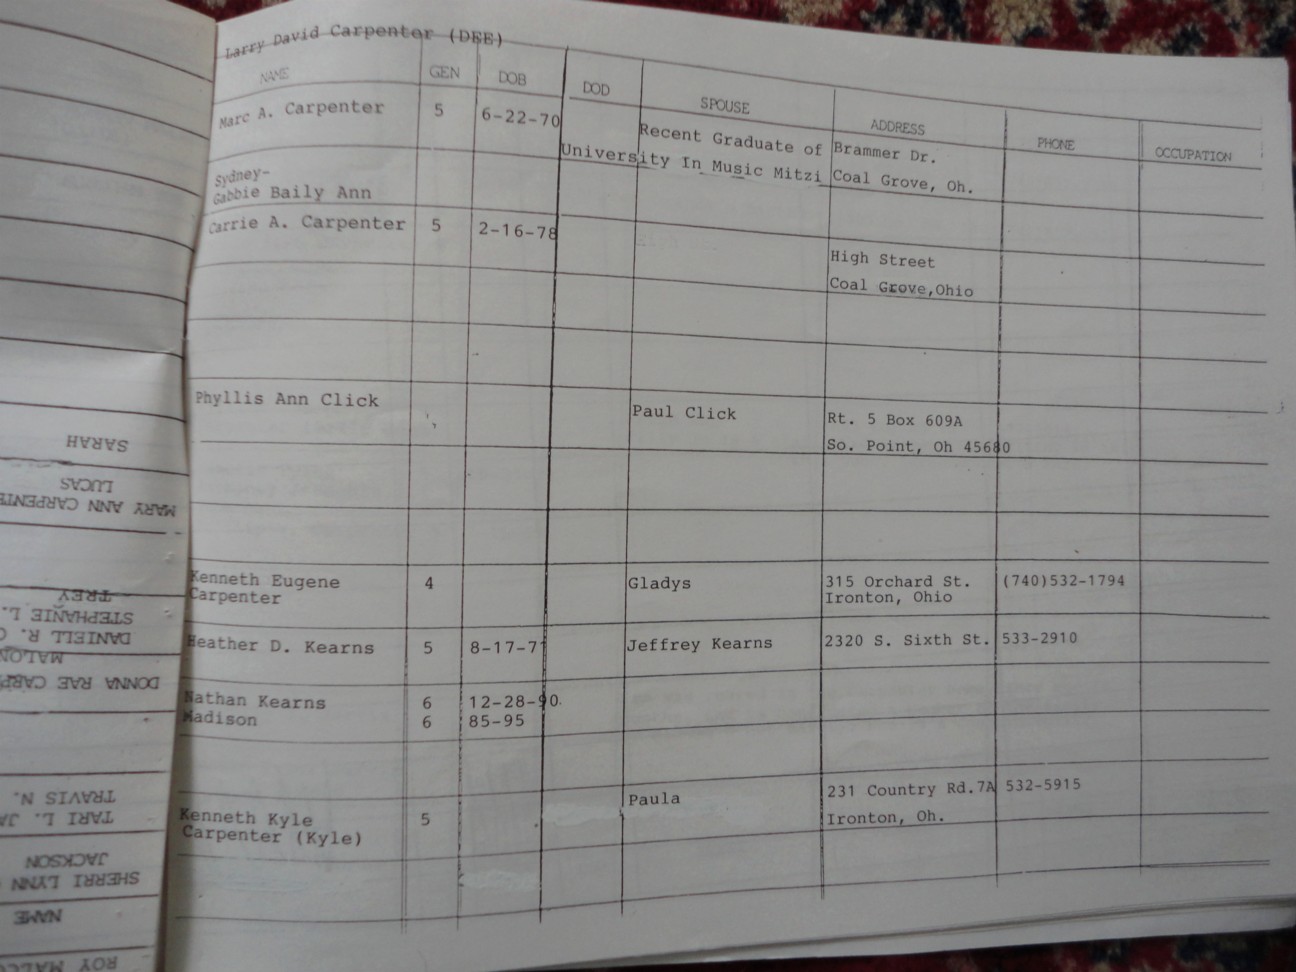 Larry David Carpenter (DEE)
NAME GEN DOB DOD SPOUSE ADDRESS PHONE OCCUPATION
Marc A. Carpenter 5 6-22-70 Recent Graduate of Brammer Dr.
University In Music Mitzi Coal Grove, Oh.
Sydney-
Gabbie Baily Ann
Carrie A. Carpenter 5 2-16-78
High Street
Coal Grove,Ohio
Phyllis Ann Click Paul Click Rt. 5 Box 609A
So. Point, Oh 45680
Kenneth Eugene 4 Gladys 315 Orchard St. (740)532-1794
Carpenter Ironton, Ohio
Heather D. Kearns 5 8-17-71 Jeffrey Kearns 2320 S. Sixth St. 533-2910
Nathan Kearns 6 12-28-90
Madison 6 85-95
Paula 231 Country Rd.7A 532-5915
Kenneth Kyle 5 Ironton, Oh.
Carpenter (Kyle)
SARAH
LUCAS
MARY ANN CARPENTE
TREY
STEPHANIE L.
DANIELL R. C
MALON
DONNA RAE CARP
TRAVIS N.
TARI L. JA
JACKSON
SHERRI LYNN
NAME
ROY MALCO